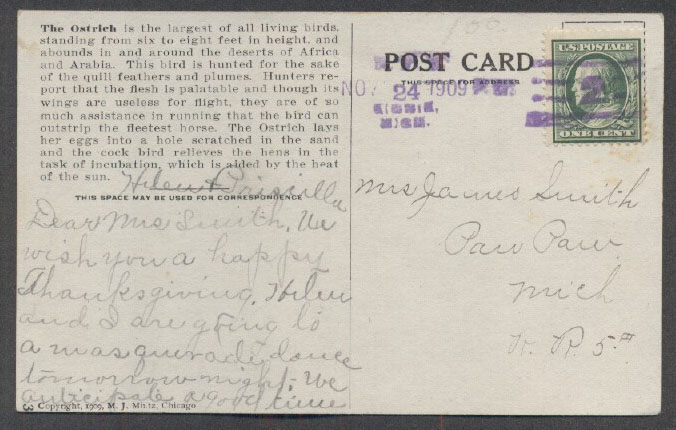 The Ostrich is the largest of all living birds,
standing from six to eight feet in height, and
abounds in and around the deserts of Africa
and Arabia. This bird is hunted for the sake
of the quill feathers and plumes. Hunters re-
port that the flesh is palatable and though its
wings are useless for flight, they are of so
much assistance in running that the bird can
outstrip the fleetest horse. The Ostrich lays
her eggs into a hole scratched in the sand
and the cock bird relieves the hens in the
task of incubation, which is aided by the heat
of the sun.
Helen + Priscilla
THIS SPACE MAY BE USED FOR CORRESPONDENCE
Dear Mrs Smith, We
wish you a happy
Thanksgiving. Helen
and I are going to
a masquerade dance
tomorrow night. We
anticipate a good time
Copyright, 1909, M. J. Mintz, Chicago
POST CARD
THIS SPACE FOR ADDRESS
NOV
24 1909
MICH.
U.S. POSTAGE
2
ONE CENT
Mrs James Smith
Paw Paw
Mich
R. 5